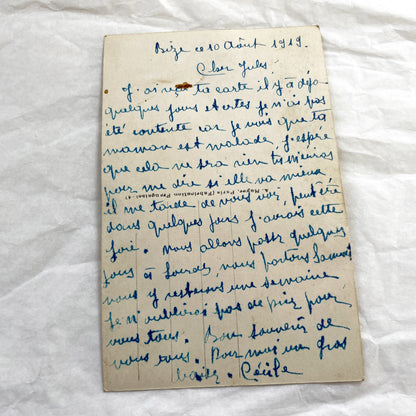 Bize ce 10 Août 1919.
Cher Jules
J'ai reçu ta carte il y a déja
quelques jours et certes je n'ai pas
été contente car je vois que ta
maman est malade, j'espère
que cela ne sera rien tu m'écriras
pour me dire si elle va mieux
il me tarde de vous voir, peut être
dans quelques jours j'aurais cette
joie. nous allons passer quelques
jours à Lourdes, nous partons Samedi
nous y resterons une semaine
Je n'oublierai pas de prier pour
vous tous. Bon souvenir de
nous tous. Pour moi une gros
baiser. Cécile
Paris (Fabrication Française)